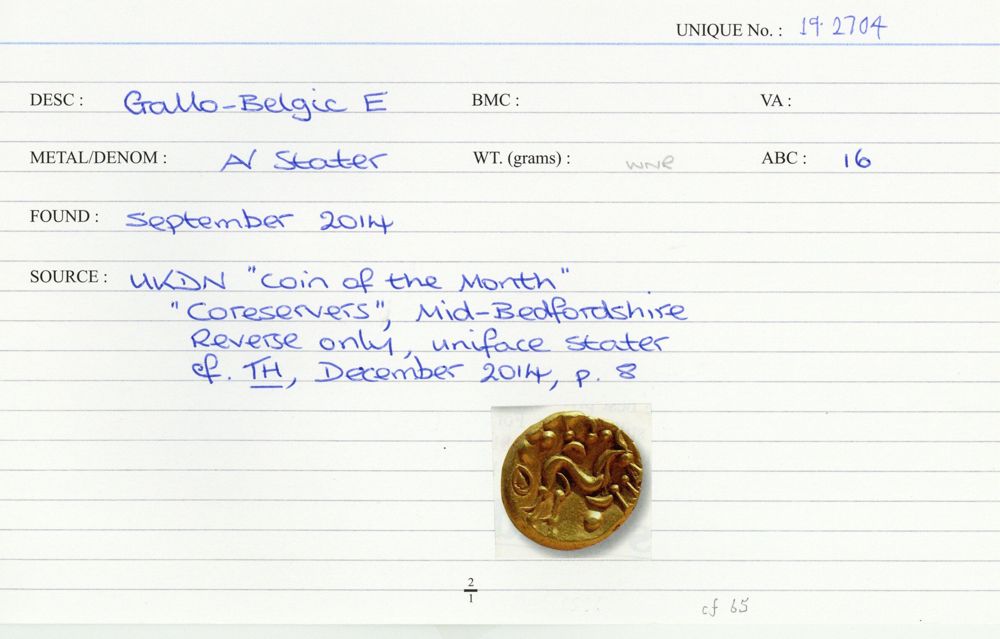 UNIQUE No. : 19.2704
DESC : Gallo-Belgic E BMC : VA :
METAL/DENOM : A/ Stater WT. (grams) : WNR ABC : 16
FOUND : September 2014
SOURCE : UKDN "Coin of the Month"
"Coreservers", Mid-Bedfordshire
Reverse only, uniface stater
cf. TH, December 2014, p. 8
2
1
cf 65